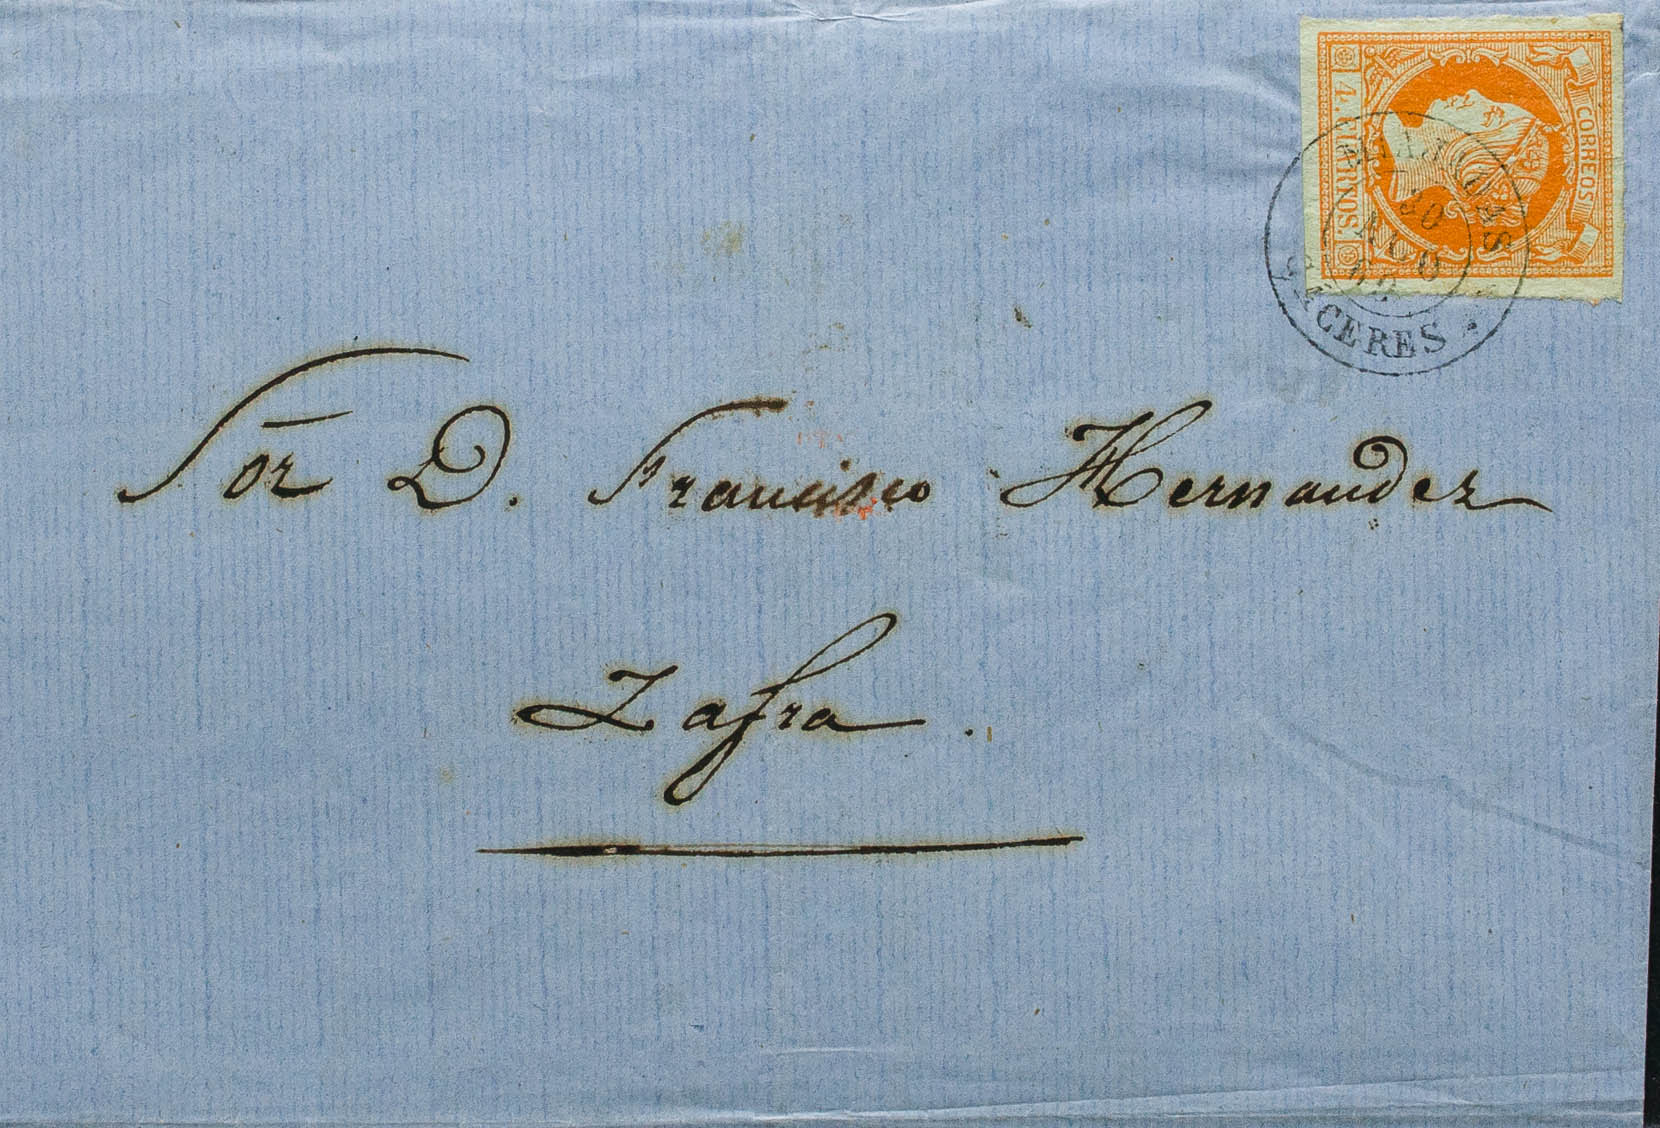 CORREOS
4. CUARTOS.
30
AGO
CACERES
Sor D. Francisco Hernandez
Zafra.